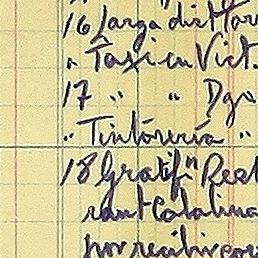 16 Larga dist Mor
" Taxi en Vict.
17 " " Dga
" Tintorería "
18 Gratif" Rest
rant Catalina
por recibir cor